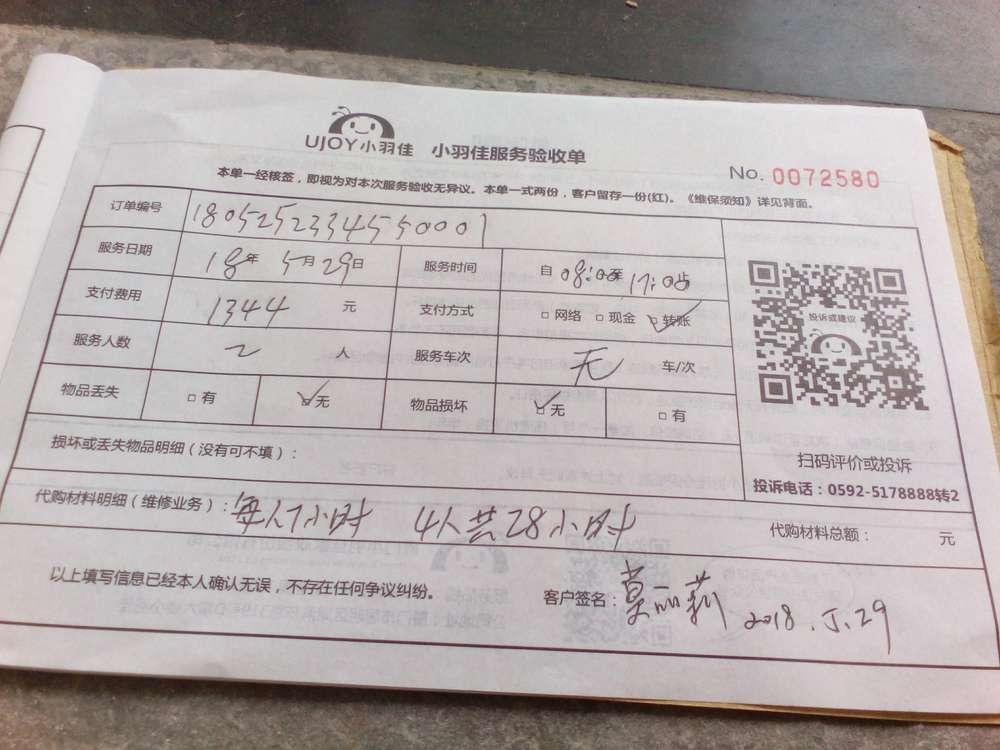 UJOY小羽佳 小羽佳服务验收单
No. 0072580
本单一经核签，即视为对本次服务验收无异议。本单一式两份，客户留存一份(红)。《维保须知》详见背面。
订单编号 1805252334550001
服务日期 18年 5月29日 服务时间 自08:00至17:00点
支付费用 1344 元 支付方式 □网络 □现金 ☑转账
服务人数 2 人 服务车次 无 车/次
物品丢失 □有 ☑无 物品损坏 ☑无 □有
投诉或建议
扫码评价或投诉
投诉电话：0592-5178888转2
损坏或丢失物品明细（没有可不填）：
代购材料明细（维修业务）：每人7小时 4人共28小时 代购材料总额： 元
以上填写信息已经本人确认无误，不存在任何争议纠纷。 客户签名：莫丽莉 2018.5.29